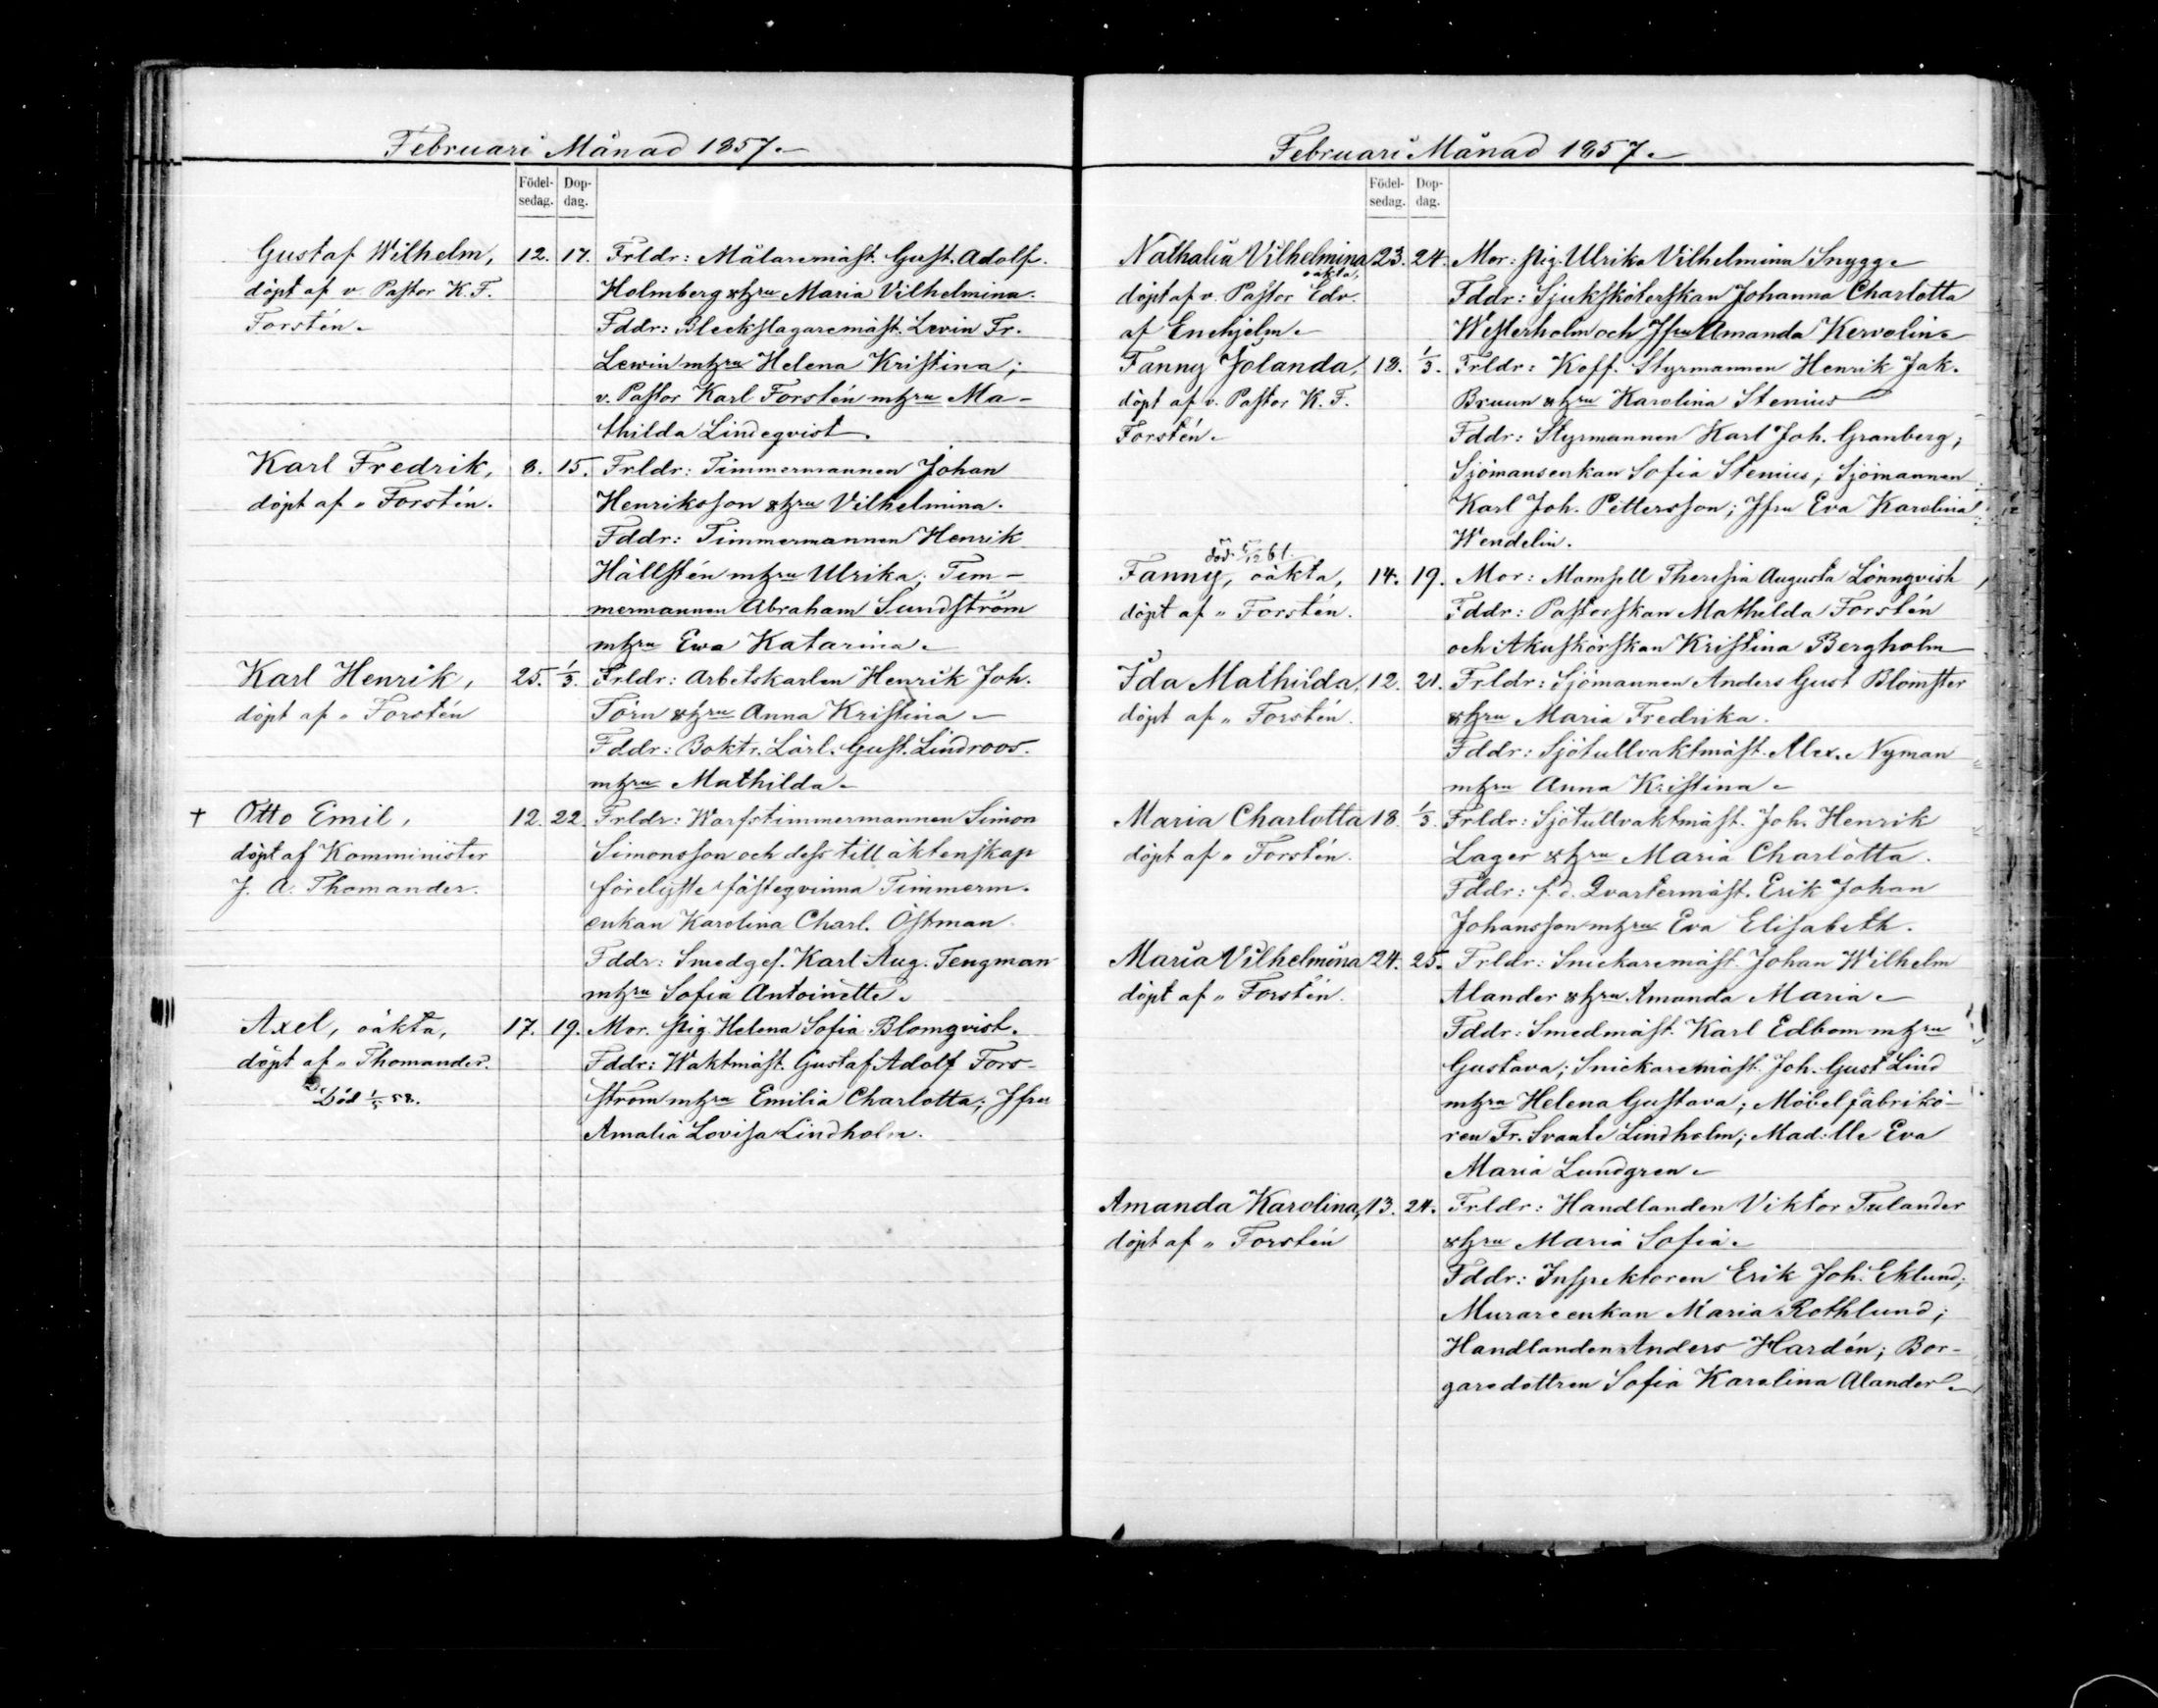 Februari Månad 1857.
Födel-
sedag.
Dop-
dag.
Gustaf Wilhelm, 12. 17. Frldr: Målaremäst. Gust. Adolf
döpt af v. Pastor K. F. Holmberg o. h. hru Maria Vilhelmina.
Forstén. Fddr: Bleckslagaremäst. Levin Fr.
Lewin m. h. hru Helena Kristina;
v. Pastor Karl Forstén m. h. hru Ma-
thilda Lindeqvist.
Karl Fredrik, 8. 15. Frldr: Timmermannen Johan
döpt af " Forstén. Henriksson o. h. hru Vilhelmina.
Fddr: Timmermannen Henrik
Hällstén m. h. hru Ulrika; Tim-
mermannen Abraham Sundström
m. h. hru Ewa Katarina.
Karl Henrik, 25. 1/3. Frldr: Arbetskarlen Henrik Joh.
döpt af " Forstén Törn o. h. hru Anna Kristina
Fddr: Boktr. Lärl. Gust. Lindroos
m. h. hru Mathilda.
† Otto Emil, 12. 22. Frldr: Warfstimmermannen Simon
döpt af Komminister Simonsson och dess till äktenskap
J. A. Thomander. förelyste fästeqvinna Timmerm.
enkan Karolina Charl. Östman
Fddr: Smedges. Karl Aug. Tengman
m. h. hru Sofia Antoinette.
Axel, oäkta, 17. 19. Mor. pig. Helena Sofia Blomqvist.
döpt af " Thomander. Fddr: Waktmäst. Gustaf Adolf Fors-
Död 1/5 58. ström m. h. hru Emilia Charlotta; Jfru
Amalia Lovisa Lindholm.
Februari Månad 1857.
Födel-
sedag.
Dop-
dag.
Nathalia Vilhelmina 23. 24. Mor: pig. Ulrika Vilhelmina Snygg.
oäkta,
döpt af v. Pastor Edv. Fddr: Sjuksköterskan Johanna Charlotta
af Enehjelm. Westerholm och Jfru Amanda Kervolin.
Fanny Jolanda, 18. 1/3. Frldr: Koff. Styrmannen Henrik Jak.
döpt af v. Pastor K. F. Bruun o. h. hru Karolina Stenius
Forstén. Fddr: Styrmannen Karl Joh. Granberg;
Sjömansenkan Sofia Stenius; Sjömannen
Karl Joh. Pettersson; Jfru Eva Karolina
Wendelin.
död 5/12 61.
Fanny, oäkta, 14. 19. Mor: Mamsell Theresia Augusta Lönnqvist
döpt af " Forstén. Fddr: Pastorskan Mathilda Forstén
och Akuskörskan Kristina Bergholm
Ida Mathilda, 12. 21. Frldr: Sjömannen Anders Gust Blomster
döpt af " Forstén. o. h. hru Maria Fredrika.
Fddr: Sjötullvaktmäst. Alex. Nyman
m. h. hru Anna Kristina
Maria Charlotta 18 1/3. Frldr: Sjötullvaktmäst. Joh. Henrik
döpt af " Forstén. Lager o. h. hru Maria Charlotta.
Fddr: f. d. Qvartermäst. Erik Johan
Johansson m. h. hru Eva Elisabeth.
Maria Vilhelmina 24. 25. Frldr: Snickaremäst. Johan Wilhelm
döpt af " Forstén. Alander o. h. hru Amanda Maria
Fddr: Smedmäst. Karl Edbom m. h. hru
Gustava; Snickaremäst. Joh. Gust Lind
m. h. hru Helena Gustava; Möbelfabrikö-
ren Fr. Svante Lindholm; Mad:lle Eva
Maria Lundgren.
Amanda Karolina, 13. 24. Frldr: Handlanden Viktor Tulander
döpt af " Forstén o. h. hru Maria Sofia.
Fddr: Inspektoren Erik Joh. Eklund;
Murareenkan Maria Rothlund;
Handlanden Anders Hardén; Bor-
garedottren Sofia Karolina Alander.